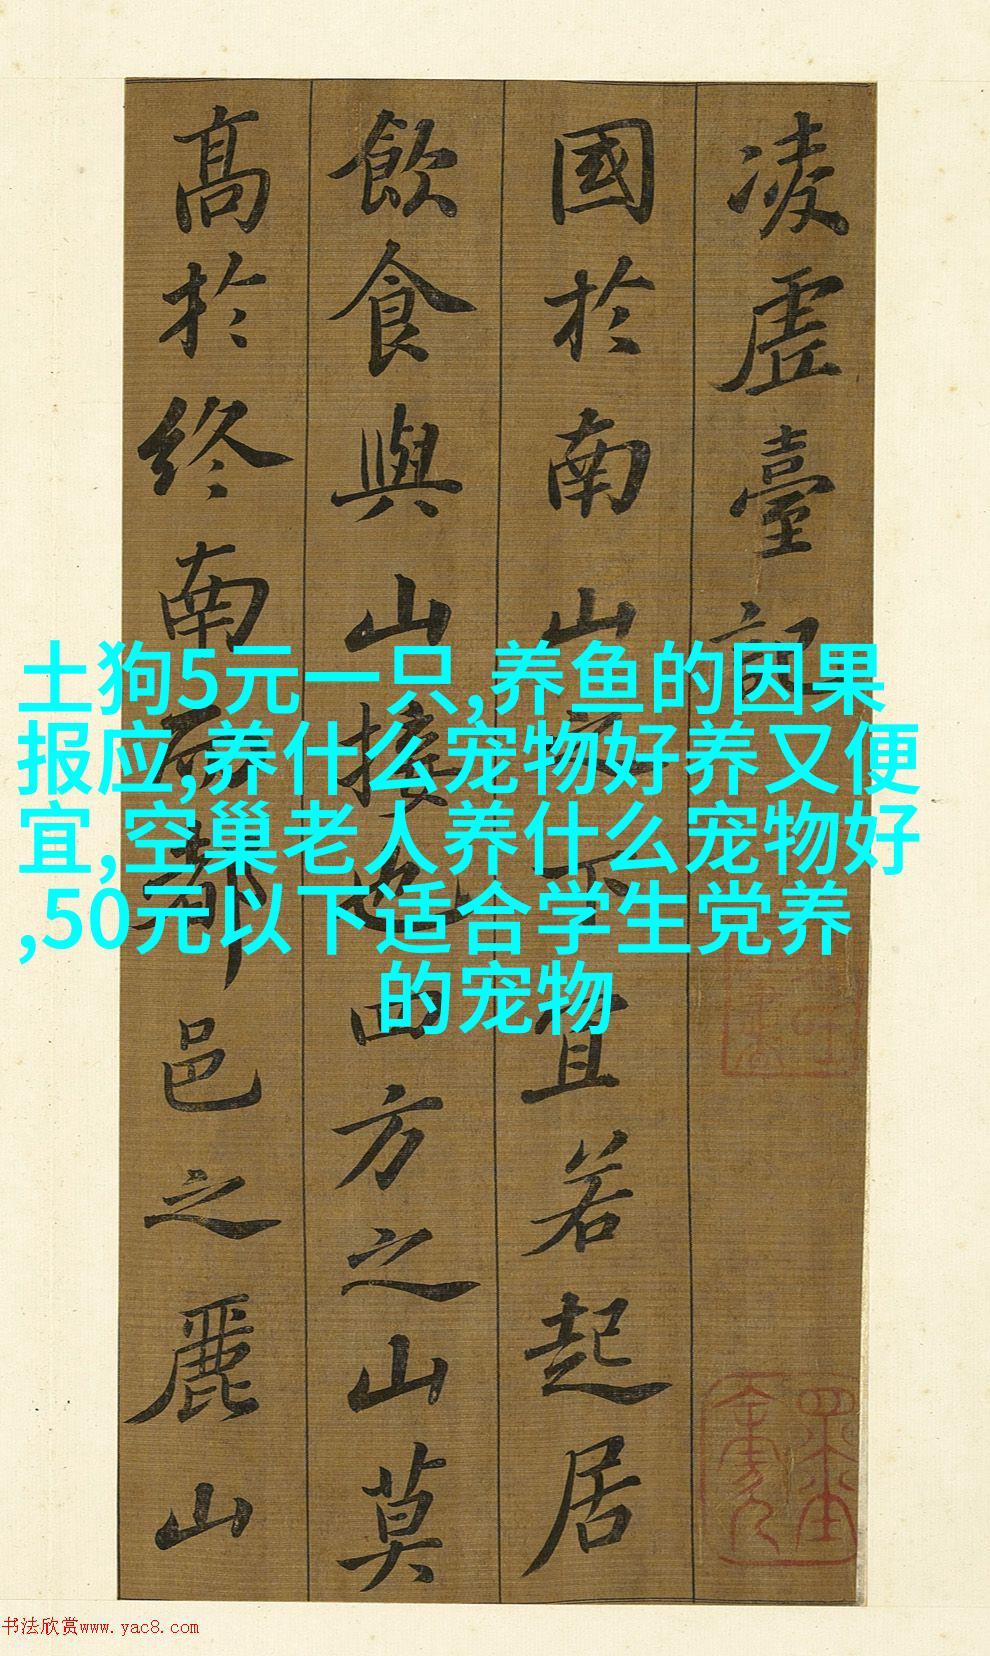 凌虛臺記
國於南山之下宜若起居
飲食與山接也四方之山莫
高於終南而都邑之麗山
土狗5元一只,养鱼的因果
报应,养什么宠物好养又便
宜,空巢老人养什么宠物好
,50元以下适合学生党养
的宠物
书法欣赏www.yac8.com